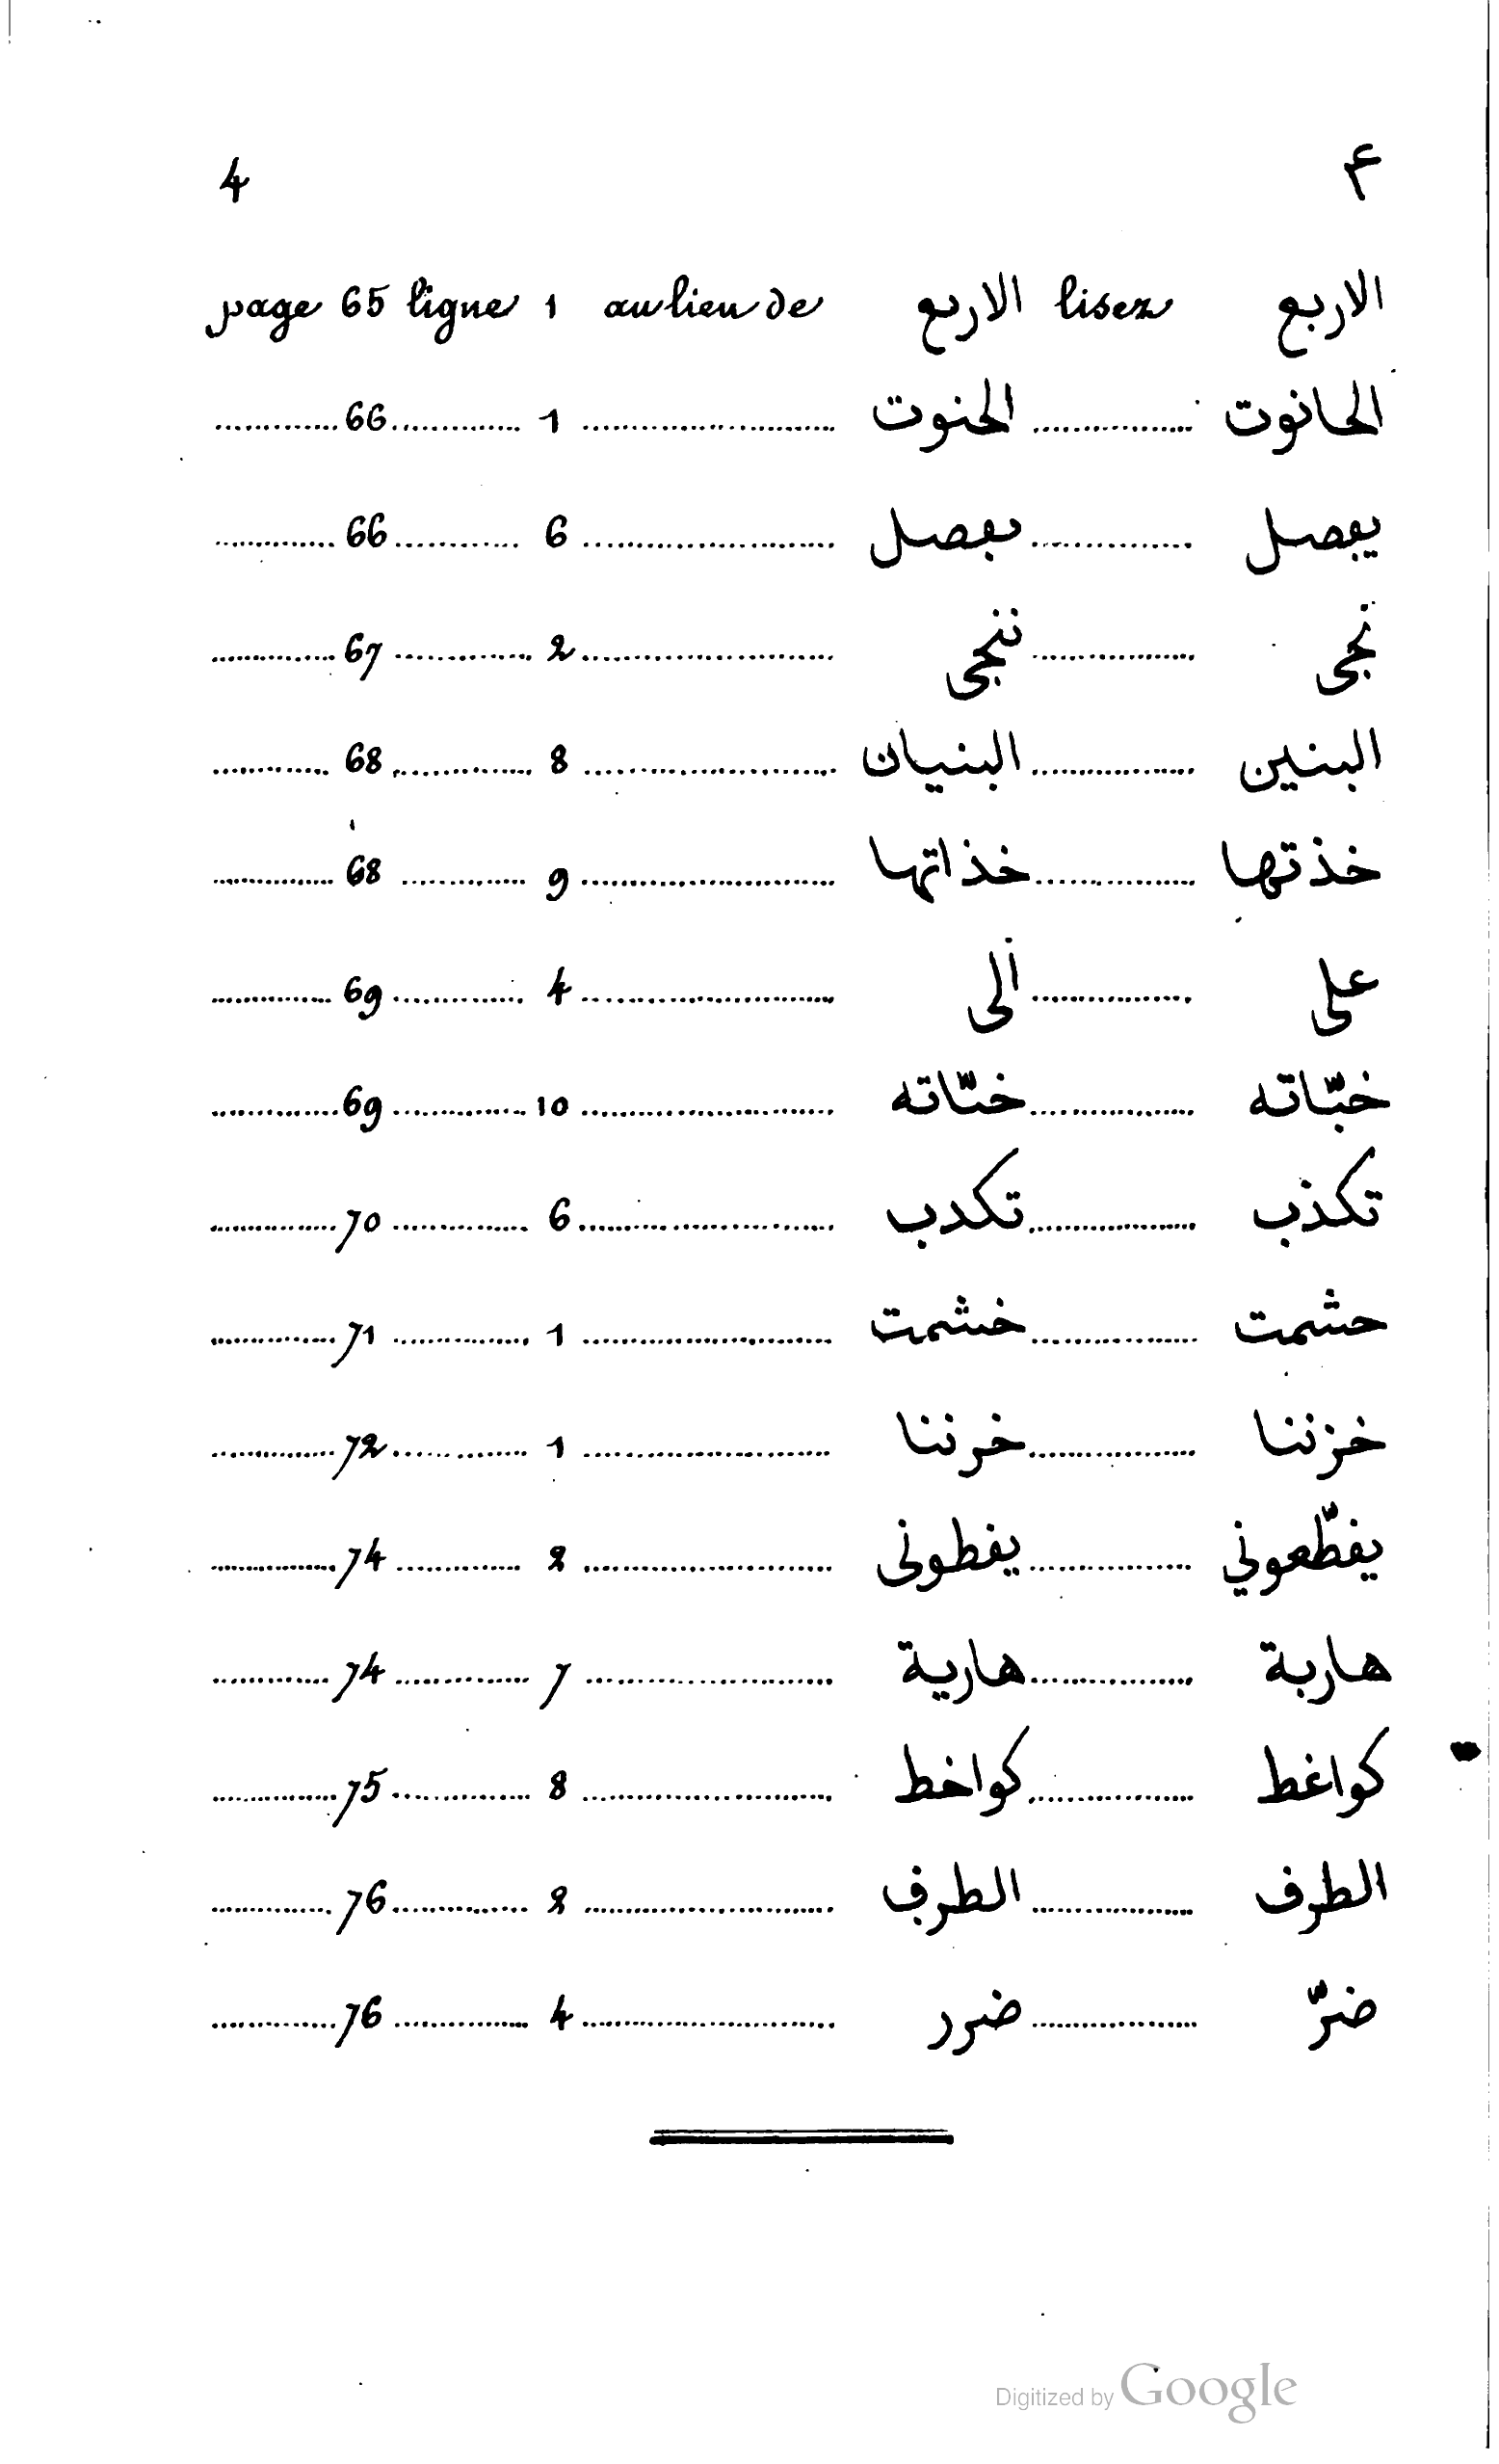 4 ۴
page 65 ligne 1 au lieu de الاريع lisez الاربع
............. 66 ............. 1 ......................... الحنوت ................ الحانوت
............. 66 ............. 6 ......................... ............... يڢصل
............. 67 ............. 2 ......................... ننجى ................ نجى
............. 68 ............. 8 ......................... البنيان ................ البنين
............. 68 ............. 9 ......................... خذاتها ................ خذتها
............. 69 ............. 4 ......................... الى ................ على
............. 69 ............. 10 ......................... ختّاته ................ خبّاته
............. 70 ............. 6 ......................... تكدب ................ تكذب
............. 71 ............. 1 ......................... خشمت ................ حشمت
............. 72 ............. 1 ......................... خرننا ................ خزننا
............. 74 ............. 2 ......................... يفطونى ................ يفطّعوني
............. 74 ............. 7 ......................... هارية ................ هاربة
............. 75 ............. 8 ......................... كواخط ................ كواغط
............. 76 ............. 2 ......................... الطرڢ ................ الطرف
............. 76 ............. 4 ......................... ضرر ................ ضرّ
Digitized by Google